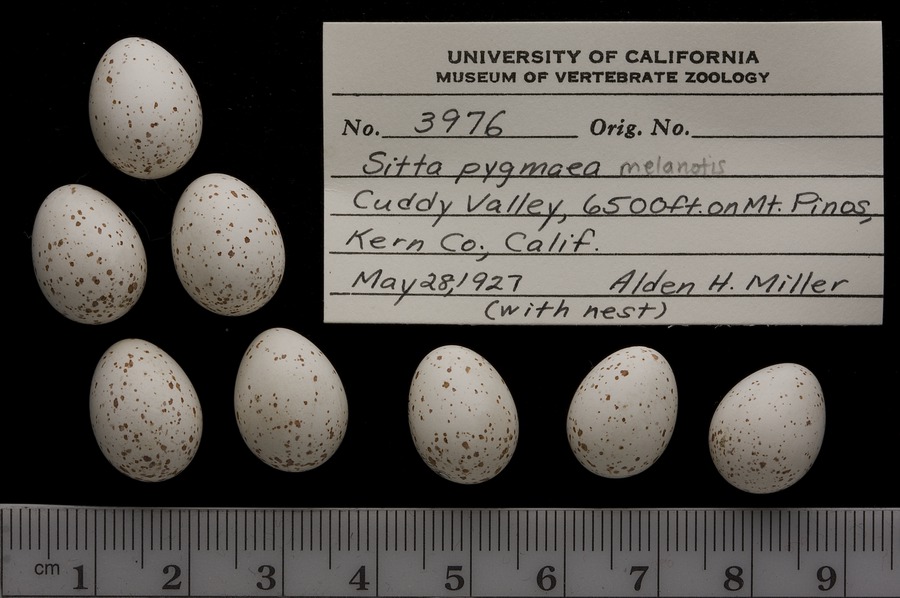 UNIVERSITY OF CALIFORNIA
MUSEUM OF VERTEBRATE ZOOLOGY
No. 3976 Orig. No.
Sitta pygmaea melanotis
Cuddy Valley, 6500ft. on Mt. Pinos,
Kern Co., Calif.
May 28, 1927 Alden H. Miller
(with nest)
cm 1 2 3 4 5 6 7 8 9